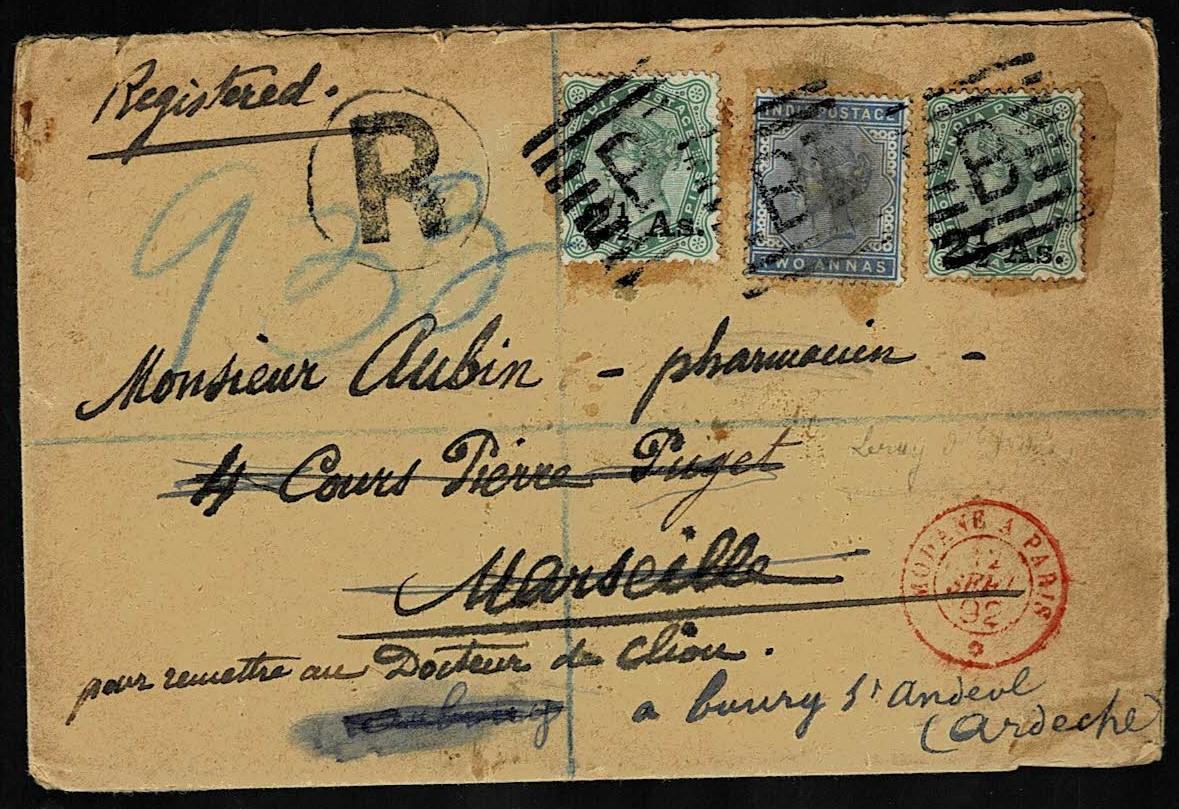 Registered.
R
933
INDIA POSTAGE
2½ As.
INDIA POSTAGE
TWO ANNAS
B
INDIA POSTAGE
2½ As.
B
Monsieur Aubin - pharmacien -
4 Cours Pierre Puget
Marseille
MODANE A PARIS
12
92
pour remettre au Docteur de Clion.
a bourg St Andeol
(Ardeche)